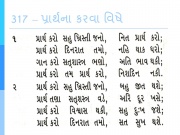 317 – પ્રાર્થના કરવા વિષે
૧ પ્રાર્થ કરો સહુ ખ્રિસ્તી જનો, નિત પ્રાર્થ કરો;
પ્રાર્થ કરો દિનરાત તમો, નહિ થાક ધરો;
ગાન કરો સતૃશાસ્ત્ર ભણો, આળસ તો ન કરો;
પ્રાર્થ કરો તમ પ્રાર્થ કરો, નિશદિન નકી.
૨ પ્રાર્થ કરો સહુ ખ્રિસ્તી જનો, બહુ જીત થશે;
પ્રાર્થ તણા સતૃશસ્ત્ર વડે, અરિ દૂર ખસે;
પ્રાર્થ કરો વિશ્વાસ થકી, સહુ દુઃખ જશે;
પ્રાર્થ કરો દિનરાત તમો, સત સુખ થશે.